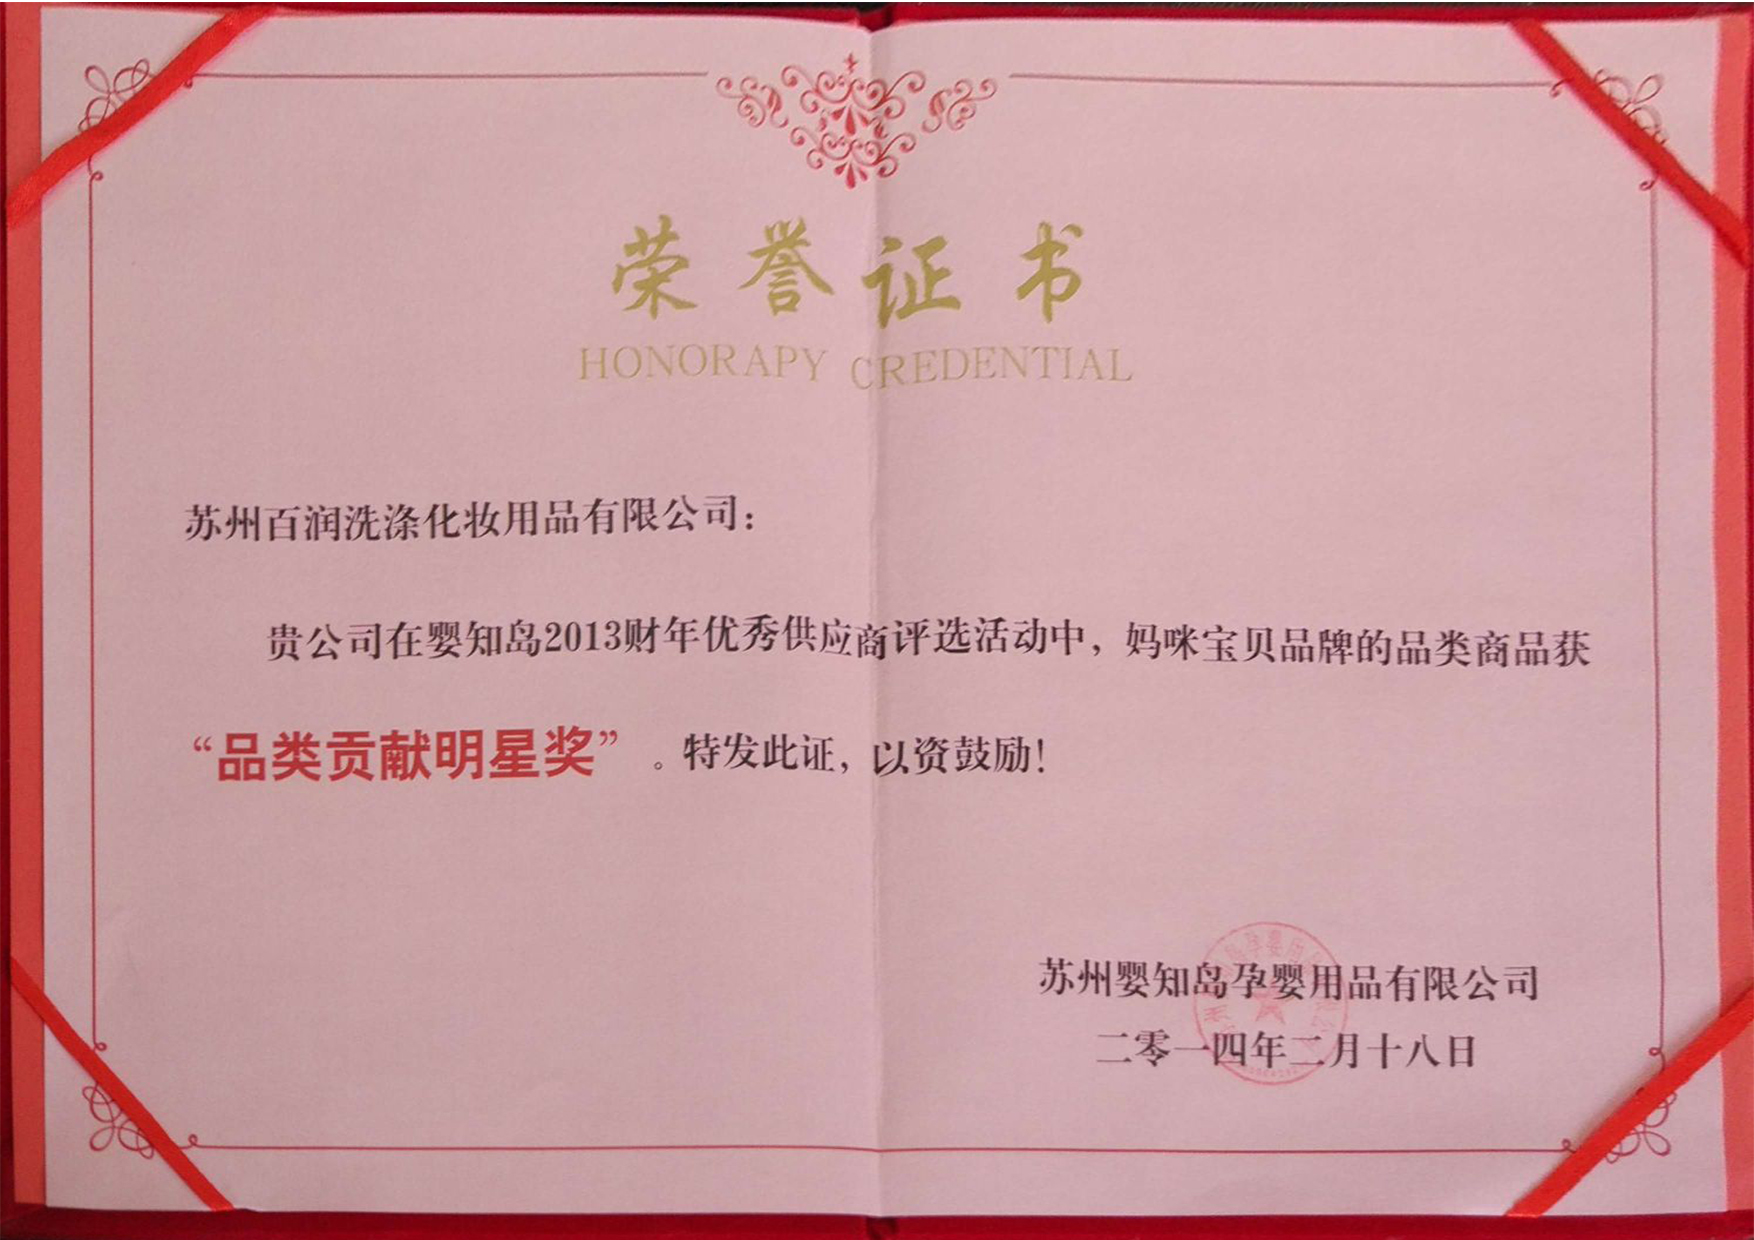 荣誉证书
HONORAPY CREDENTIAL
苏州百润洗涤化妆用品有限公司：
贵公司在婴知岛2013财年优秀供应商评选活动中，妈咪宝贝品牌的品类商品获
“品类贡献明星奖”。特发此证，以资鼓励！
苏州婴知岛孕婴用品有限公司
二零一四年二月十八日